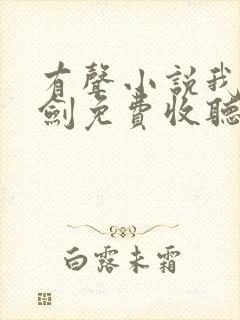 有聲小說我
劍免費收聽
白露未霜